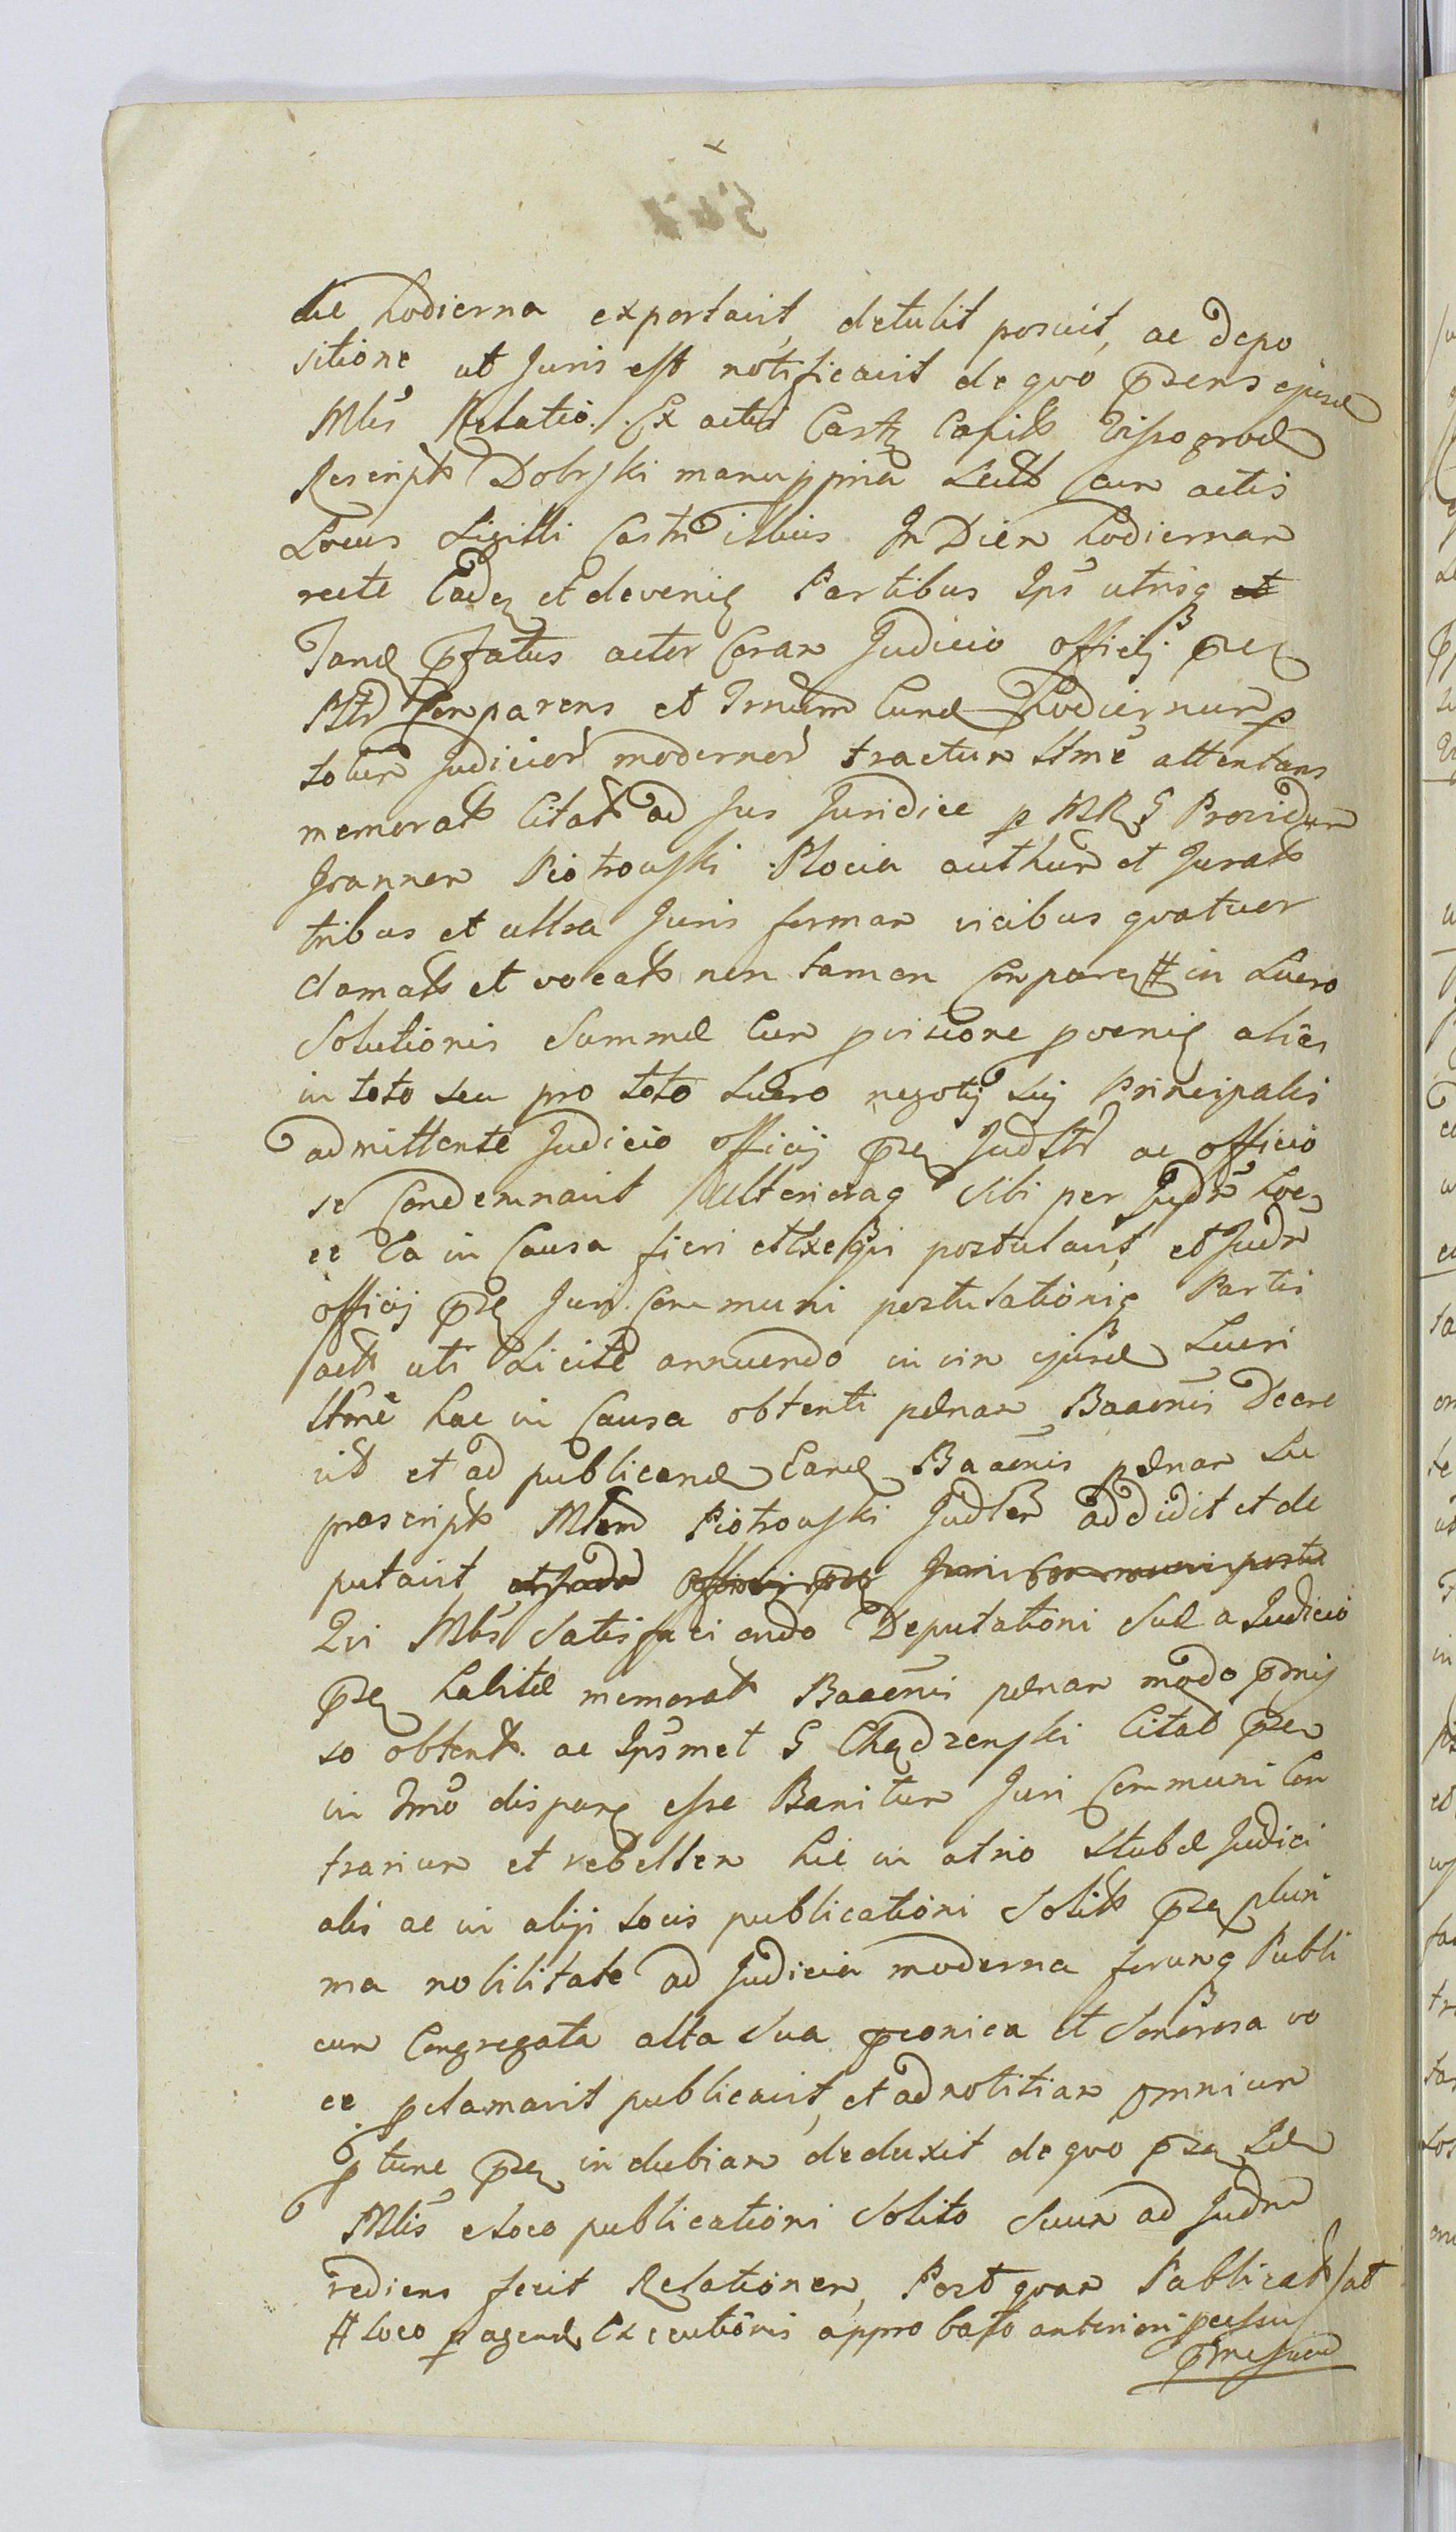 die hodierna exportavit, detulit posuit, ac depo
sitione ut Juris est notificavit de quo prsens ejusd
Mlis Relatio. Ex actis Castr Capit Vissogrod
Rescript Dobrski manu ppria Lect cum actis
Locus Sigilli Castri istius In Diem hodiernam
recte Caden et devenien Partibus Ips utrisq
Tand pfatus actor Coram Judicio officij prn
Mtr Comparens et Trnum hunc hodiernum p
totum Judicior modernor tractum Ltme attentans
memorat Citat ad Jus Juridice p MRg Providum
Joannem Piotrowski Plocia authen et Jurat
tribus et ultra Juris formam vicibus quatuor
clamat et vocat non tamen Comparen # in Lucro
Solutionis Summæ cum pvisione poenis alias
in toto seu pro toto Lucro negotij sui Principalis
admittente Judicio officij prn Judltr ac officio
se Condemnavit Ulterioraq Sibi per Judm hoc
ce Ca in Causa fieri et Exequi postulavit, et Judm
officij prn Juri Communi postulationiq Partis
act uti Licitæ annuendo in vim ejusd Lucri
Ltme hac in Causa obtenti pænam Baaonis Decre
vit et ad publicand Eand Baaonis pænam Su
prascript Mlem Piotrowski Judlem addidit et de
putavit
Qui Mlis Satisfaciendo Deputationi Suæ a Judicio
prn habitæ memorat Baaonis pænam modo pmis
so obtent. ac Ipsmet G Chądzenski Citat prn
in Trmo disparen esse Banitum Juri Communi Con
trarium et rebellem hic in atrio Stubæ Judici
alis ac in alijs Locis publicationi Solit prn pluri
ma nobilitate ad Judicia moderna forumq Publi
cum Congregata alta Sua pconica et Sonorosa vo
ce pclamavit publicavit, et ad notitiam omnium
p tunc prn indubiam deduxit de quo prn Id
Mlis e Loco publicationi Solito Suum ad Judm
rediens fecit Relationem, Post quam Publicat
# Loco pagend Executionis approbato anteriori pcessu